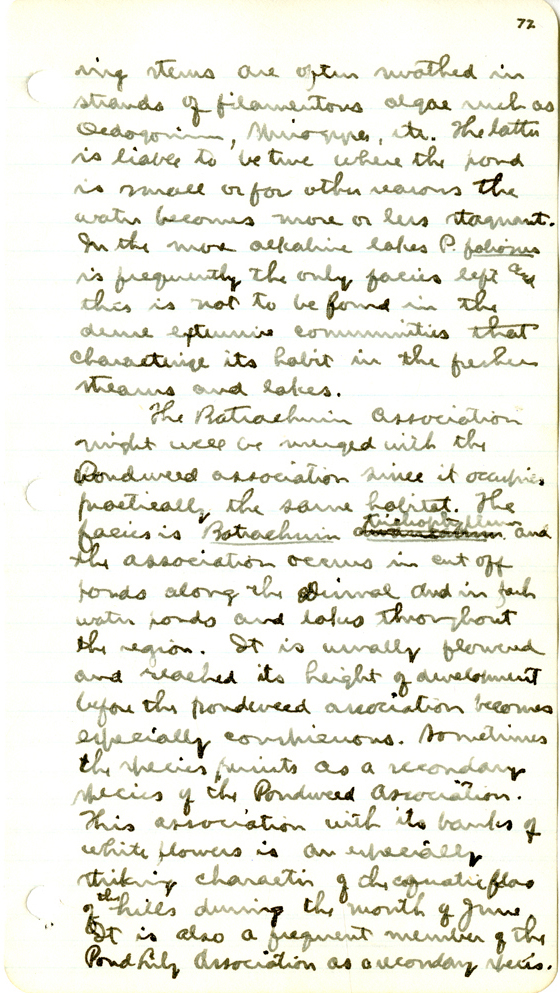 72
ring stems are often swathed in
strands of filamentous algae such as
Oedogonium, Spirogyra, etc. The latter
is liable to be true where the pond
is small or for other reasons the
water becomes more or less stagnant.
In the more alkaline lakes P. foliosus
is frequently the only facies left and
this is not to be found in the
dense extensive communities that
characterize its habit in the fresher
streams and lakes.
The Batrachium Association
might well be merged with the
Pondweed association since it occupies
practically the same habitat. The
facies is Batrachium trichophyllum and
the association occurs in cut off
ponds along the and in fresh
water ponds and lakes throughout
the region. It is usually flowered
and reached its height of development
before the pondweed association becomes
especially conspicuous. Sometimes
the species persists as a secondary
species of the Pondweed Association.
This association with its banks of
white flowers is an especially
striking character of the aquatic flora
of the hills during the month of June
It is also a frequent member of the
Pond Lily Association as a secondary species.